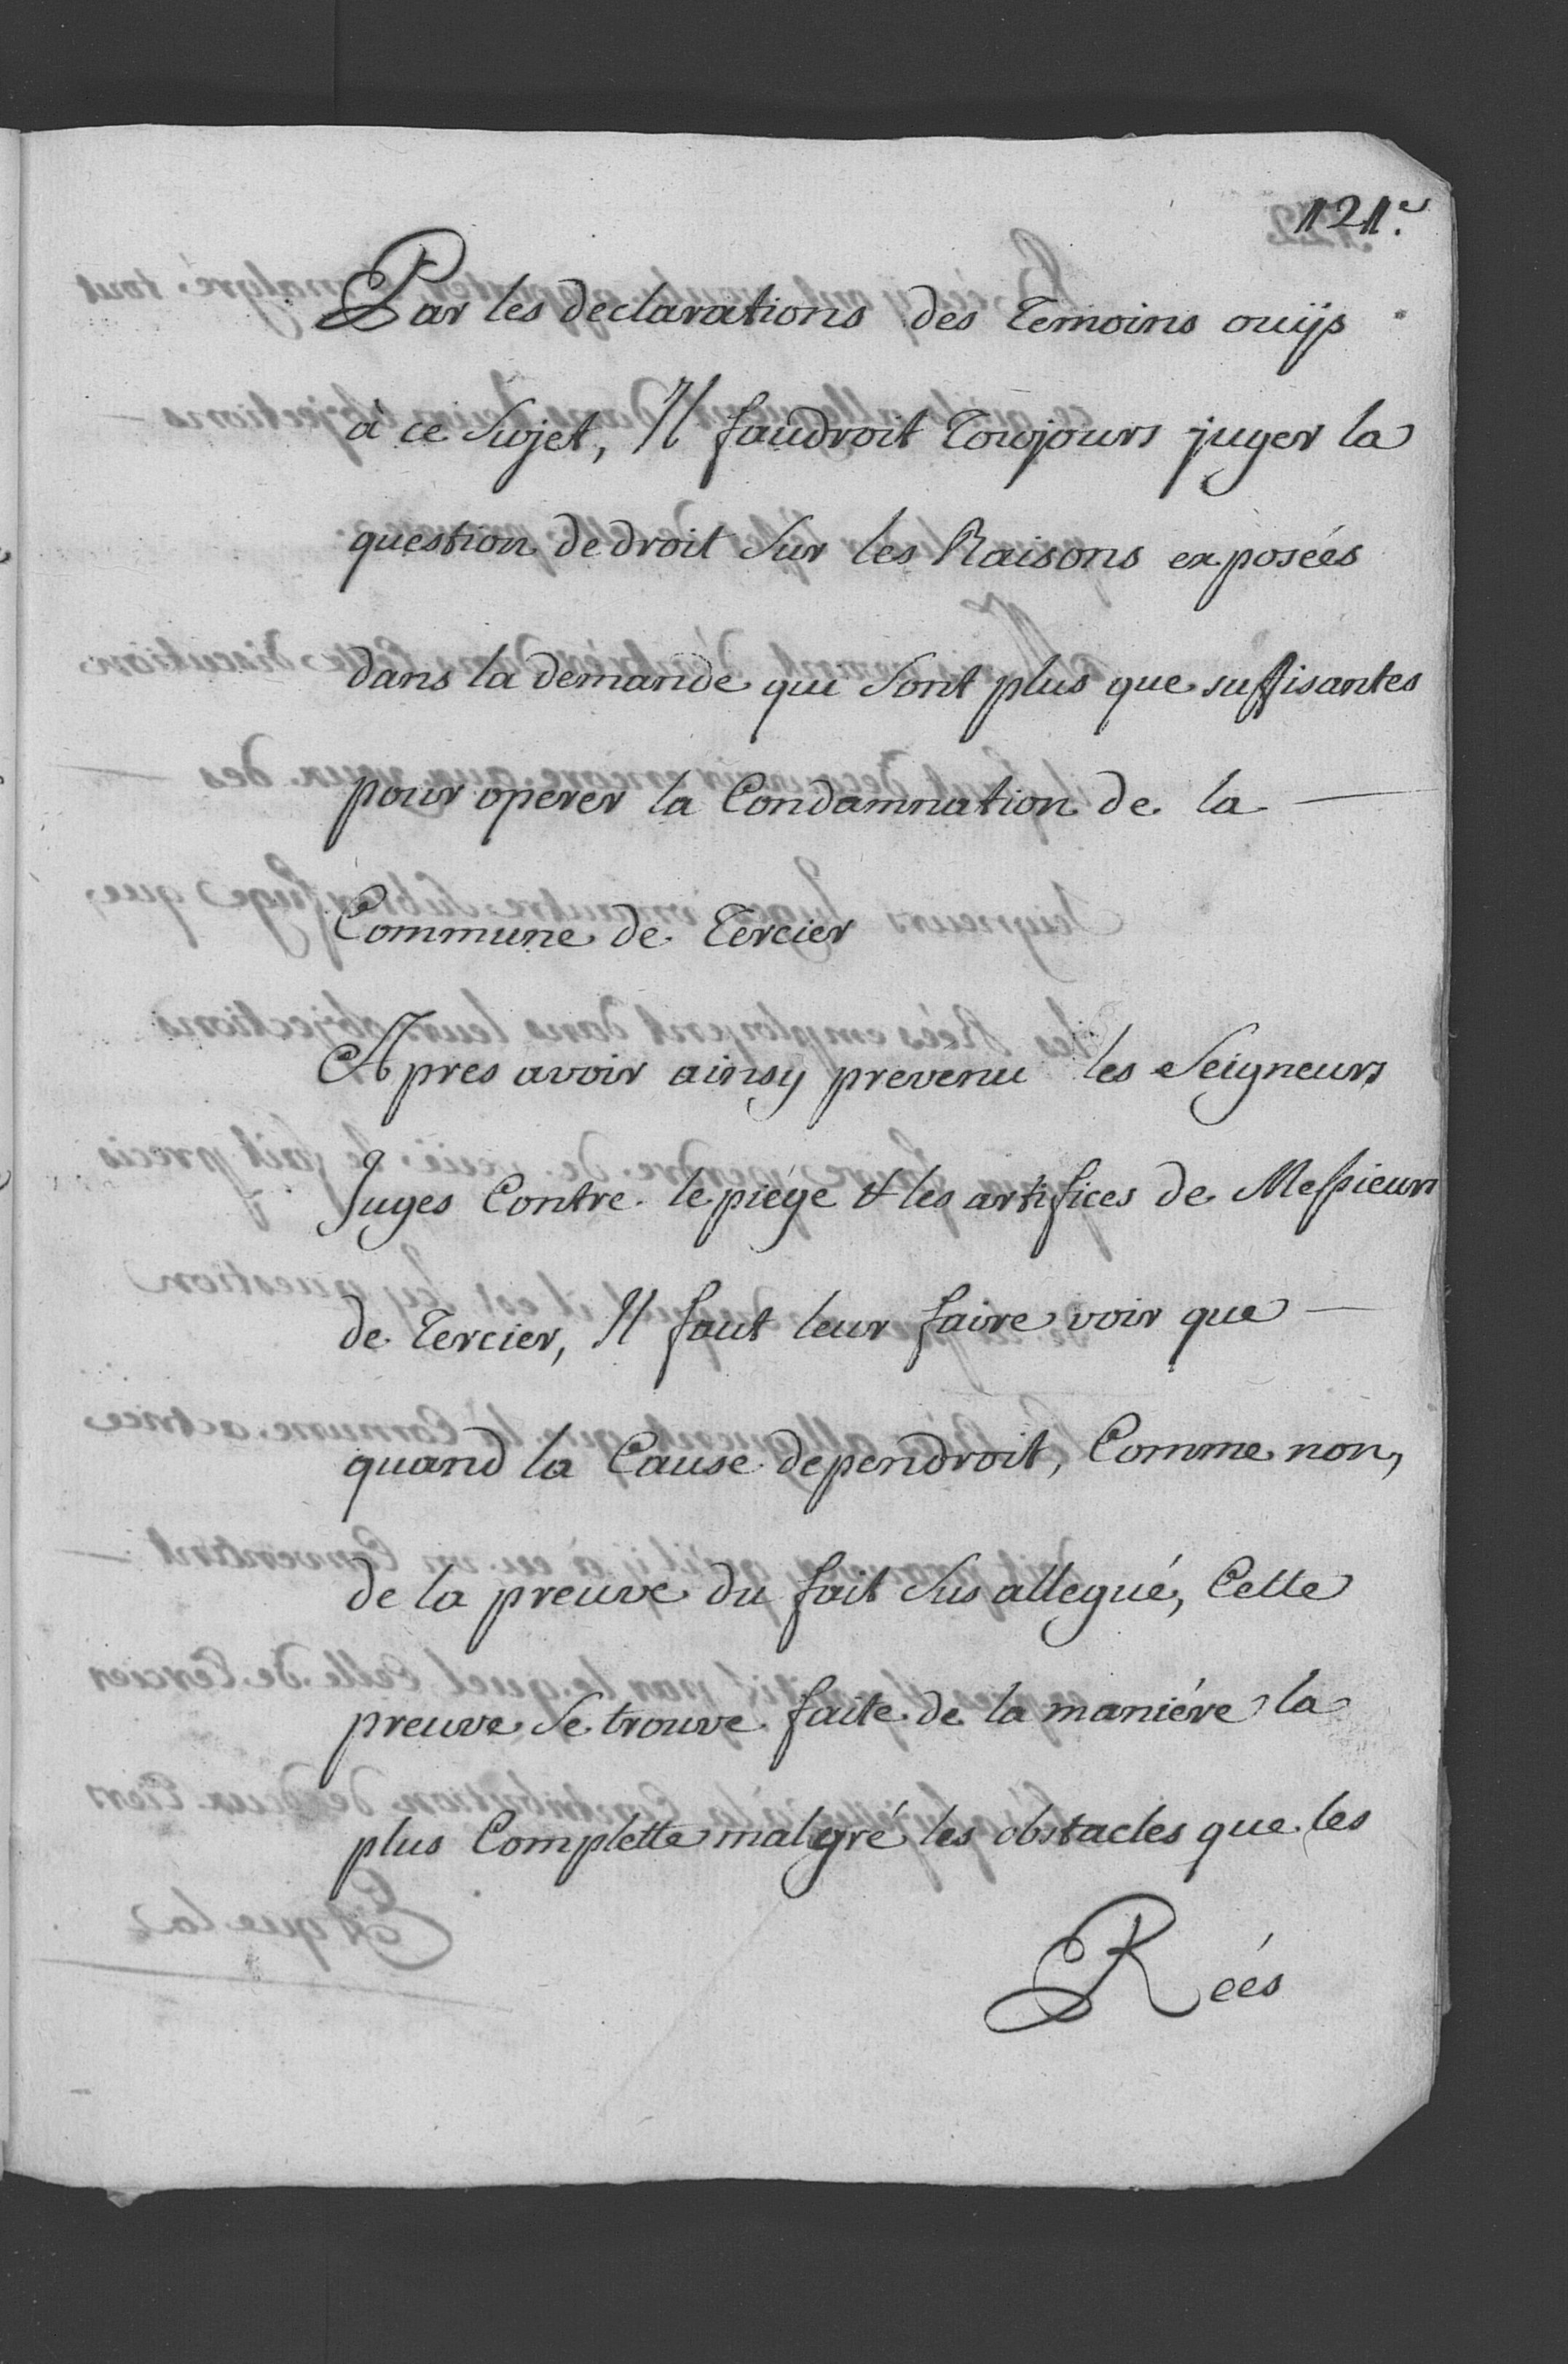 121.e
Par les declarations des Temoins ouijs
à ce Sujet, Il faudroit Toujours juger la
question de droit Sur les Raisons exposées
dans la demande qui Sont plus que suffisantes
pour operer la Condamnation de la —
Commune de Tercier
Apres avoir ainsy prevenu les Seigneurs
Juges Contre le piége & les artifices de Messieurs
de Tercier, Il faut leur faire voir que —
quand la Cause dependroit, Comme non,
de la preuve du fait Sus allegué, Cette
preuve Se trouve faite de la maniére la
plus Complette malgré les obstacles que les
Reés